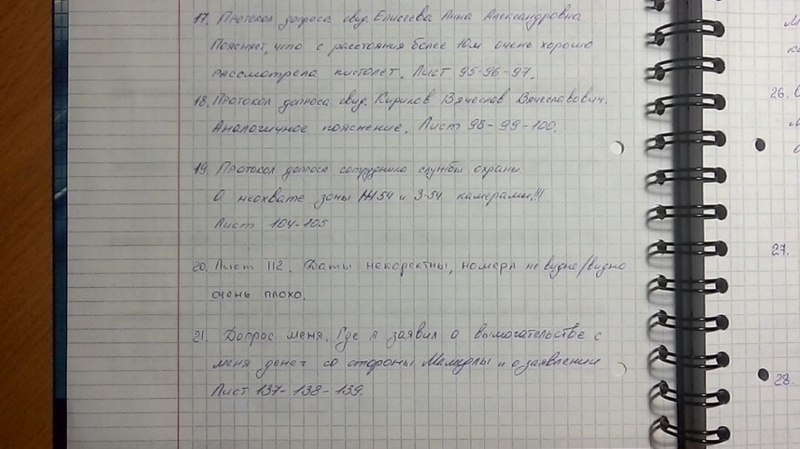 17. Протокол допроса свид. Елисеева Анна Александровна
Поясняет, что с расстояния более 10м очень хорошо
рассмотрела пистолет. Лист 95-96-97.
18. Протокол допроса свид. Кириков Вячеслав Вячеславович.
Аналогичное пояснение. Лист 98-99-100.
19. Протокол допроса сотрудника службы охраны
О неохвате зоны Ж54 и З-54 камерами!!!
Лист 104-105
20. Лист 112. Даты некоректны, номера не видно/видно
очень плохо.
21. Допрос меня. Где я заявил о вымогательстве с
меня денег со стороны и о заявлении
Лист 137-138-139.
26.
27.
28.